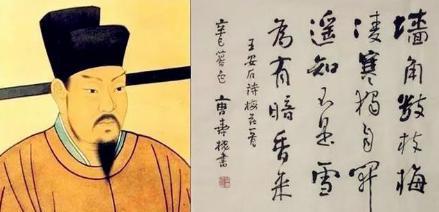 墙角数枝梅
凌寒独自开
遥知不是雪
为有暗香来
王安石诗梅花一首